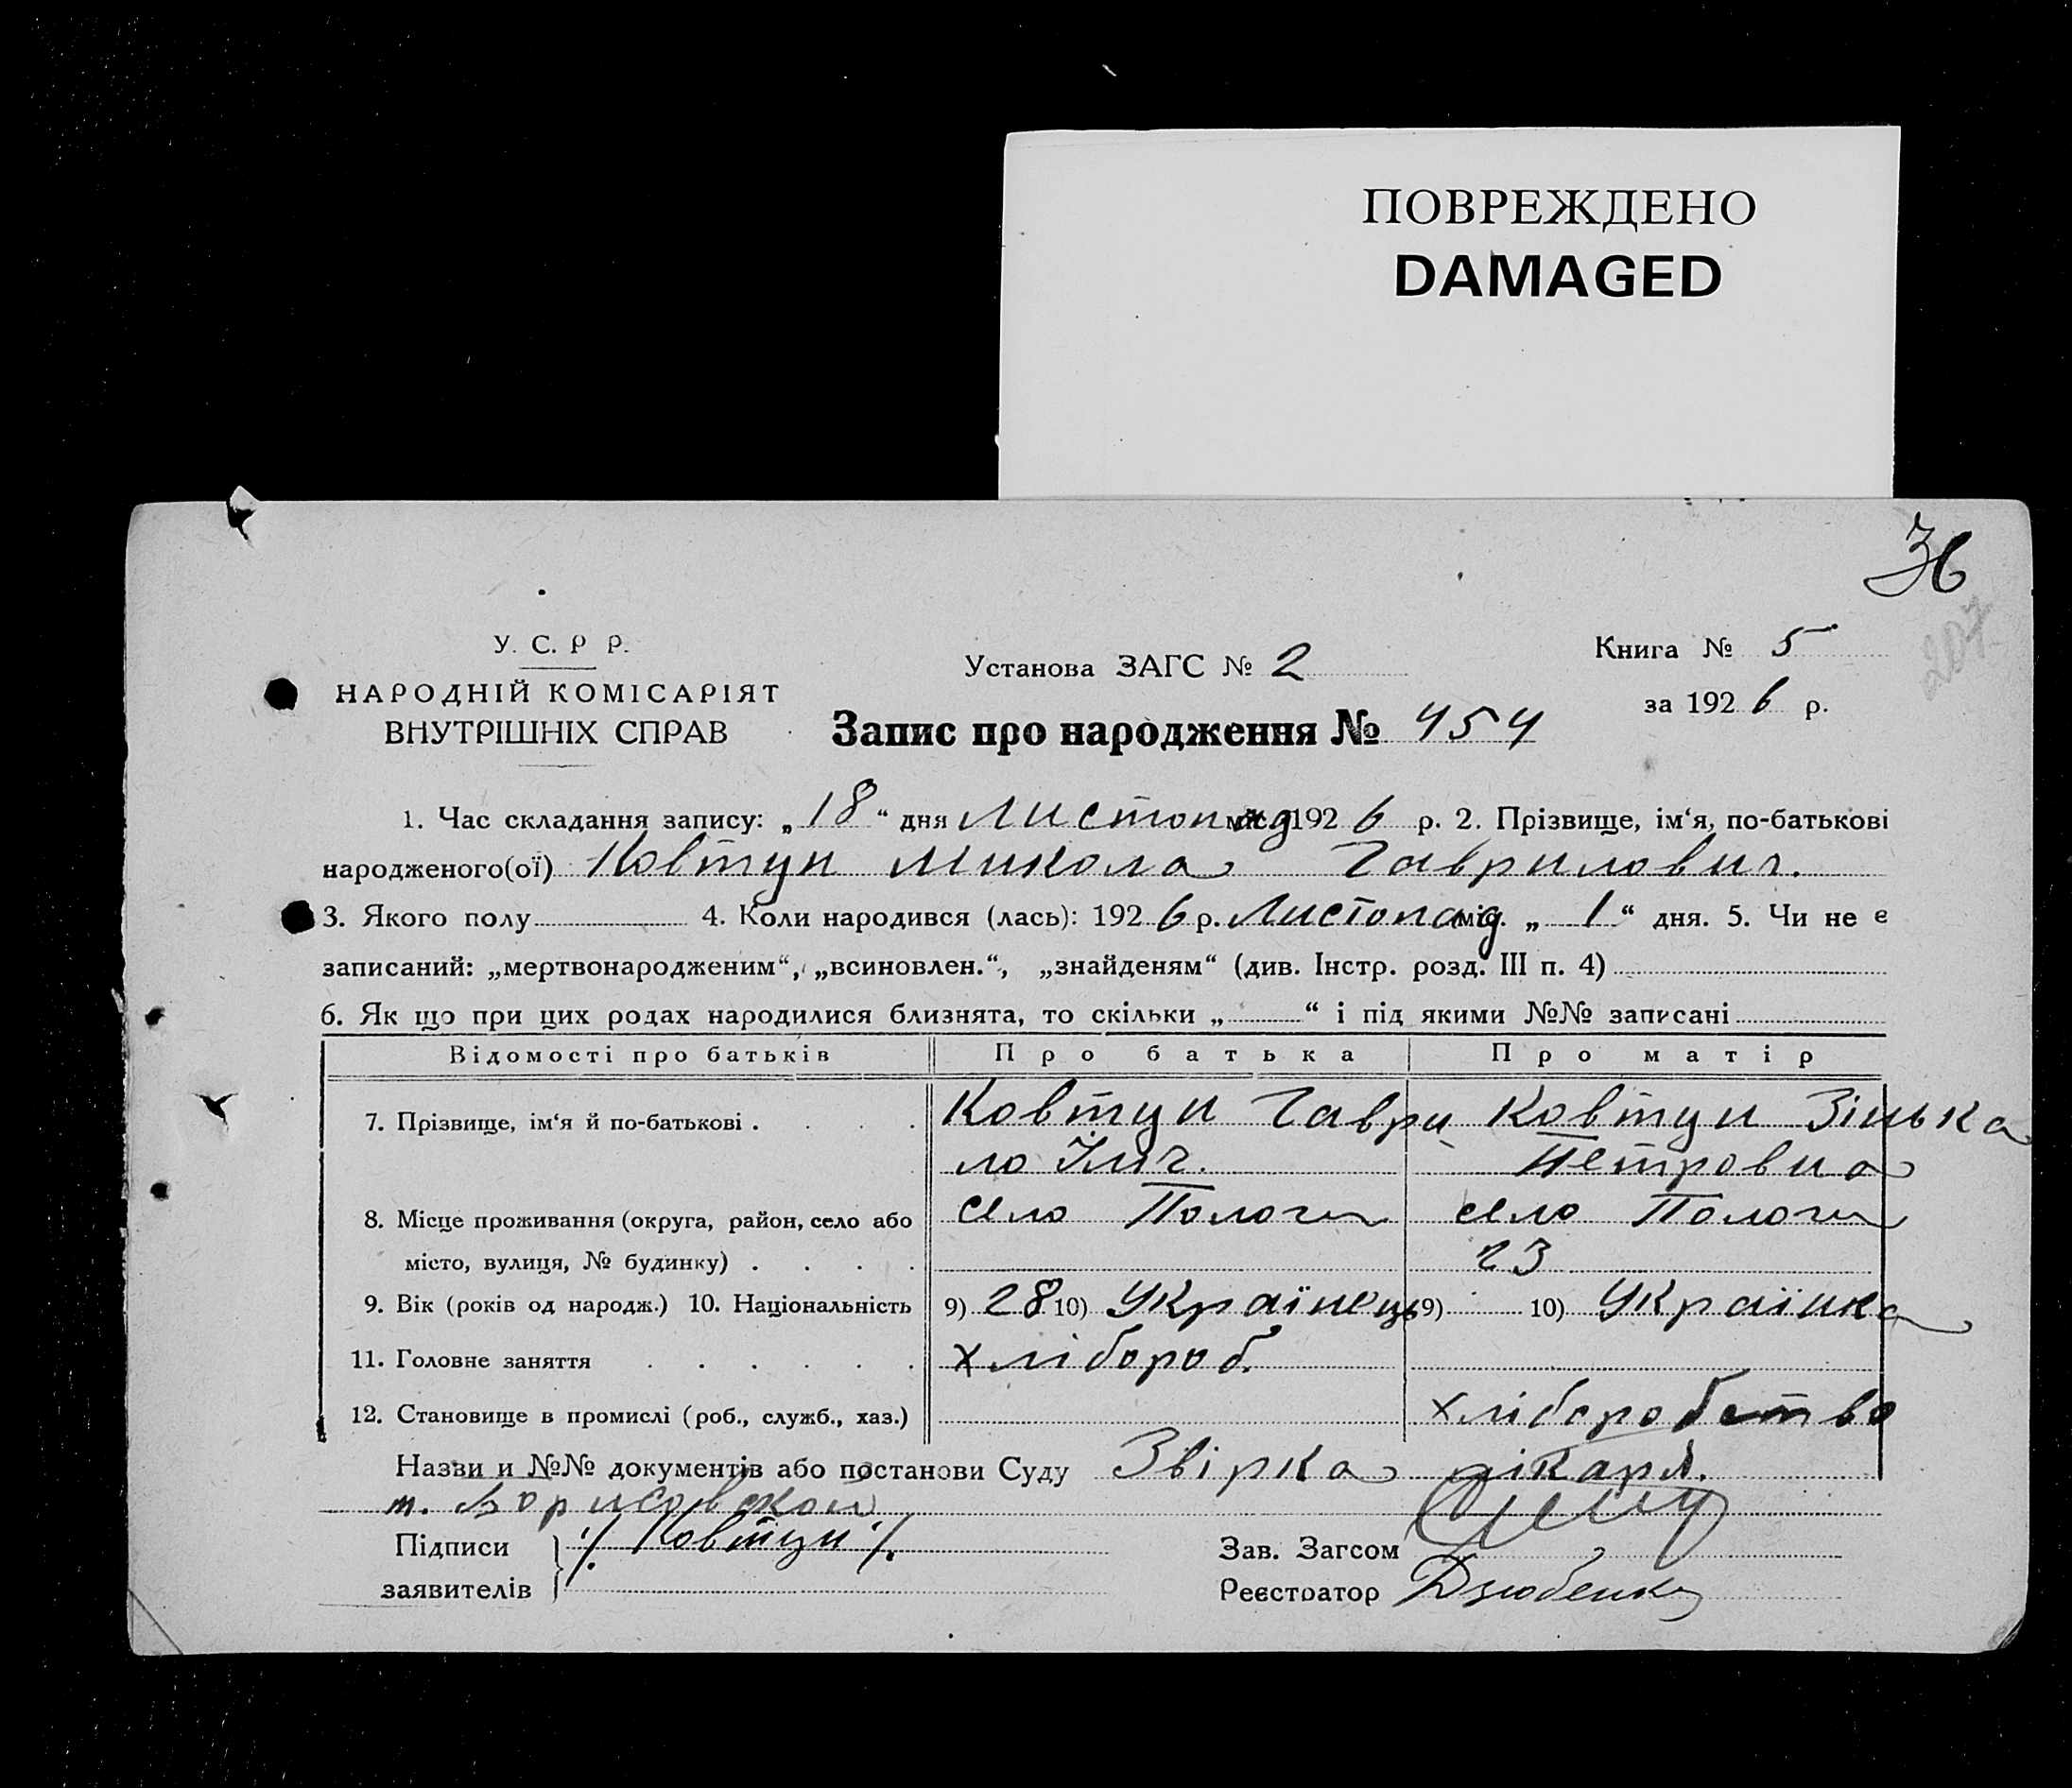 ПОВРЕЖДЕНО
DAMAGED
36
207
У. С. Р Р.
НАРОДНІЙ КОМІСАРІЯТ
ВНУТРІШНІХ СПРАВ
Установа ЗАГС № 2
Книга № 5
за 192 6 р.
Запис про народження № 454
1. Час складання запису: „ 18 “ дня Листопад міс. 192 6 р. 2. Прізвище, ім‘я, по-батькові
народженого(ої) Ковтун Микола Гаврилович.
3. Якого полу 4. Коли народився (лась): 192 6 р. Листопад міс. „ 1 “ дня. 5. Чи не є
записаний: „мертвонародженим“, „всиновлен.“, „знайденям“ (див. Інстр. розд. III п. 4)
6. Як що при цих родах народилися близнята, то скільки „ “ і під якими №№ записані
Відомості про батьків Про батька Про матір
7. Прізвище, ім‘я й по-батькові . Ковтун Гаври Ковтун Зінька
ло Ілич. Петровна
8. Місце проживання (округа, район, село або село Пологи село Пологи
місто, вулиця, № будинку) . 23
9. Вік (років од народж.) 10. Національність 9) 28 10) Українець 9) 10) Українка
11. Головне заняття хлібороб.
12. Становище в промислі (роб., служб., хаз.) хліборобство
Назви и №№ документів або постанови Суду Звірка лікаря.
т. Борисовской
Підписи ./. Ковтун ./.
заявителів
Зав. Загсом
Реєстратор Дзюбенко